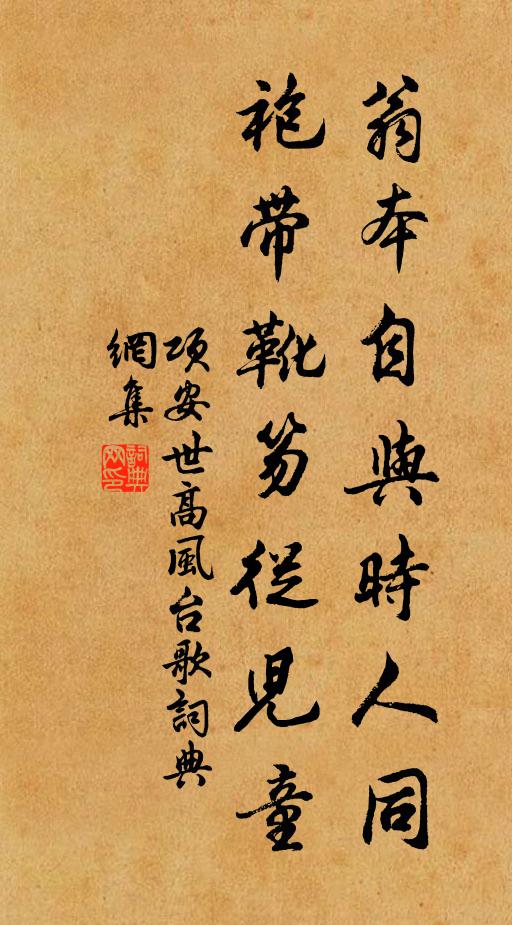 翁本自與時人同
袍帶靴笏從兒童
項安世高風台歌詞典
網集
詞典網印